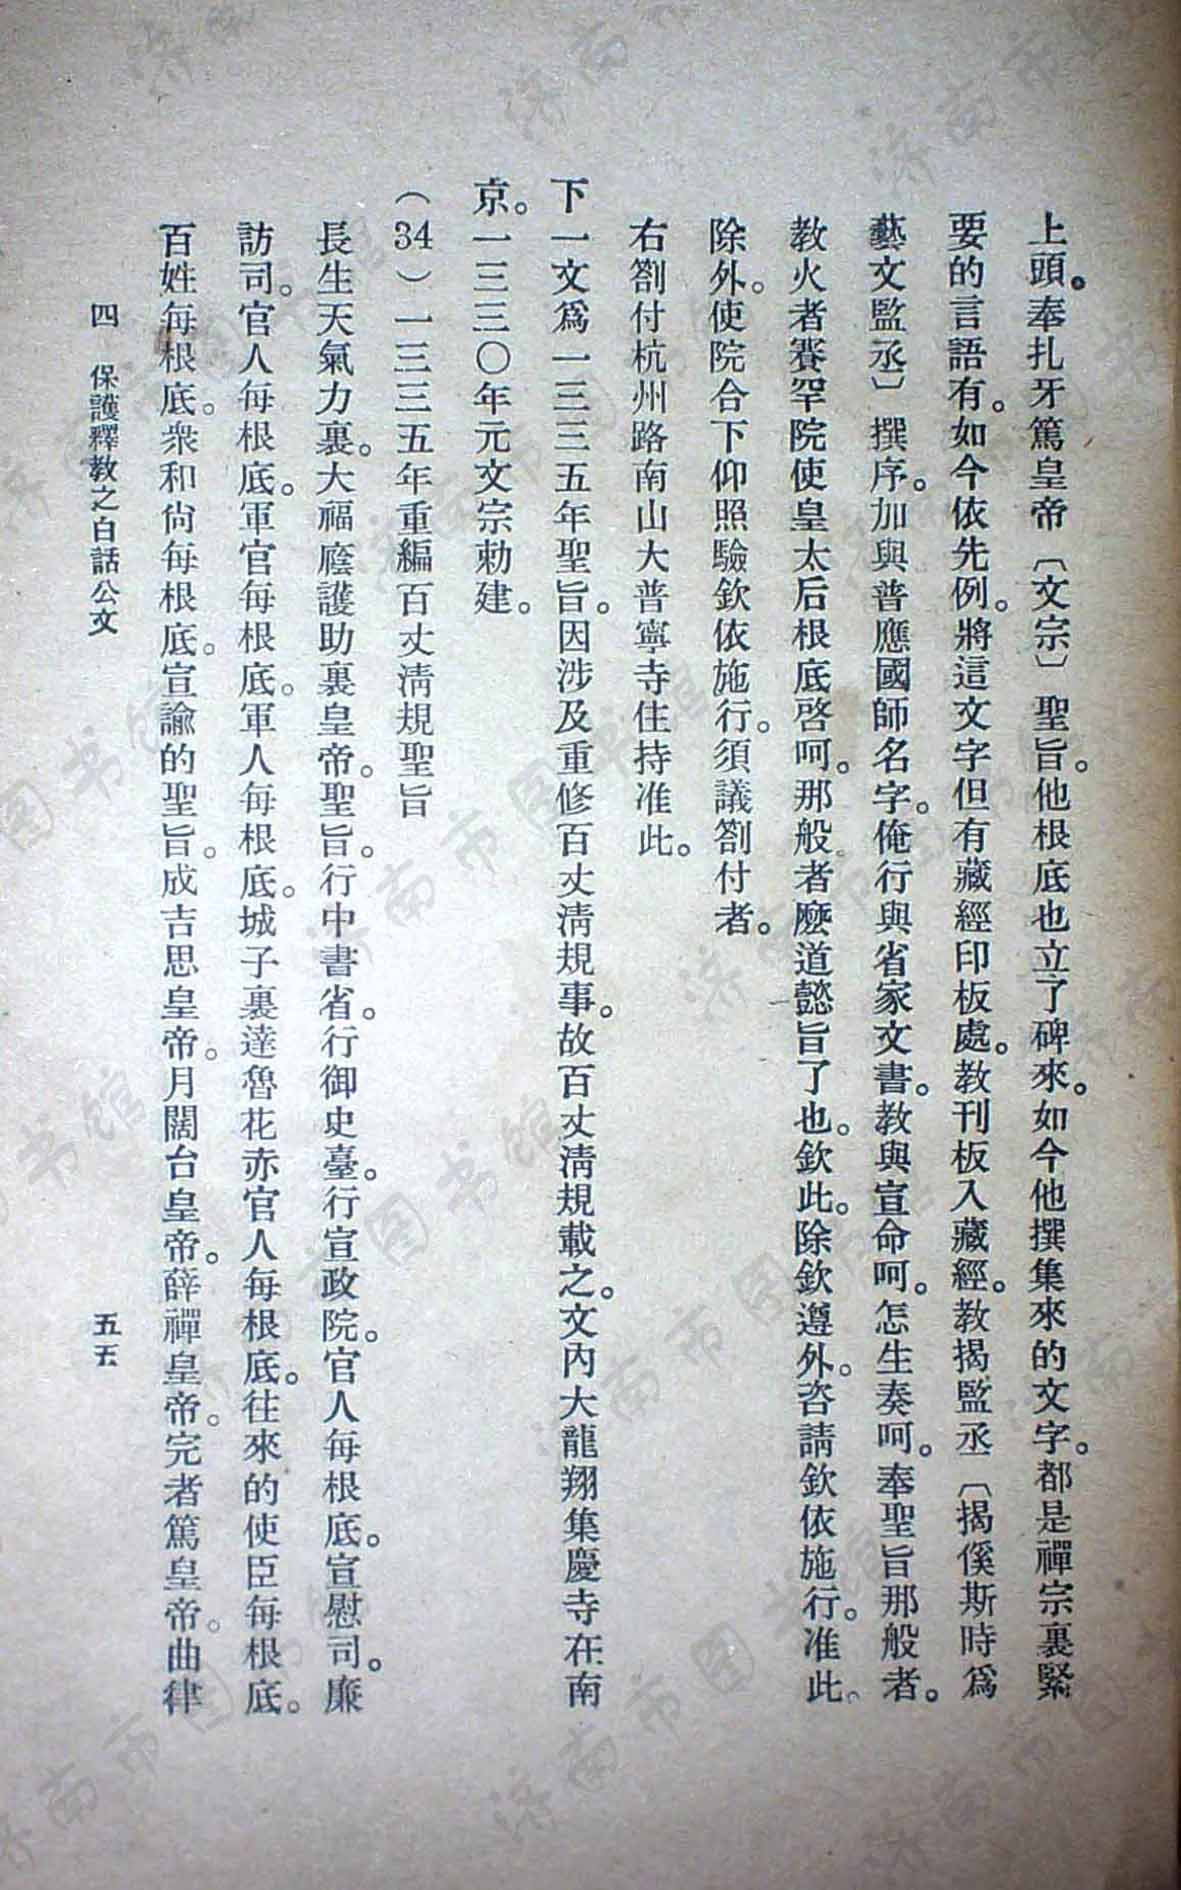 上頭。奉扎牙篤皇帝〔文宗〕聖旨。他根底也立了碑來。如今他撰集來的文字。都是禪宗裏緊
要的言語有。如今依先例。將這文字但有藏經印板處。教刊板入藏經。教揭監丞〔揭傒斯時爲
藝文監丞〕撰序。加與普應國師名字。俺行與省家文書。教與宣命呵。怎生奏呵。奉聖旨那般者。
教火者賽罕院使皇太后根底啓呵。那般者麽道懿旨了也。欽此。除欽遵外。咨請欽依施行。准此。
除外。使院合下仰照驗欽依施行。須議劄付者。
右劄付杭州路南山大普寧寺住持准此。
下一文爲一三三五年聖旨。因涉及重修百丈清規事。故百丈清規載之。文內大龍翔集慶寺在南
京。一三三〇年元文宗勅建。
（34）一三三五年重編百丈清規聖旨
長生天氣力裏。大福廕護助裏皇帝。聖旨。行中書省。行御史臺。行宣政院。官人每根底。宣慰司。廉
訪司。官人每根底。軍官每根底。軍人每根底。城子裏達魯花赤官人每根底。往來的使臣每根底。
百姓每根底。衆和尙每根底。宣諭的聖旨。成吉思皇帝。月闊台皇帝。薛禪皇帝。完者篤皇帝。曲律
四　保護釋教之白話公文　五五
济南市图书馆